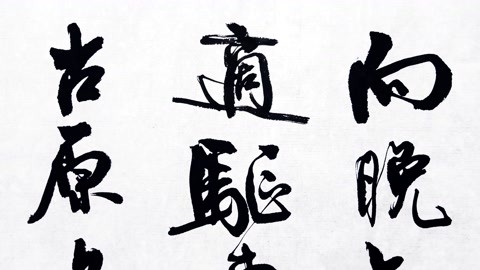 向晚
適驅
古原